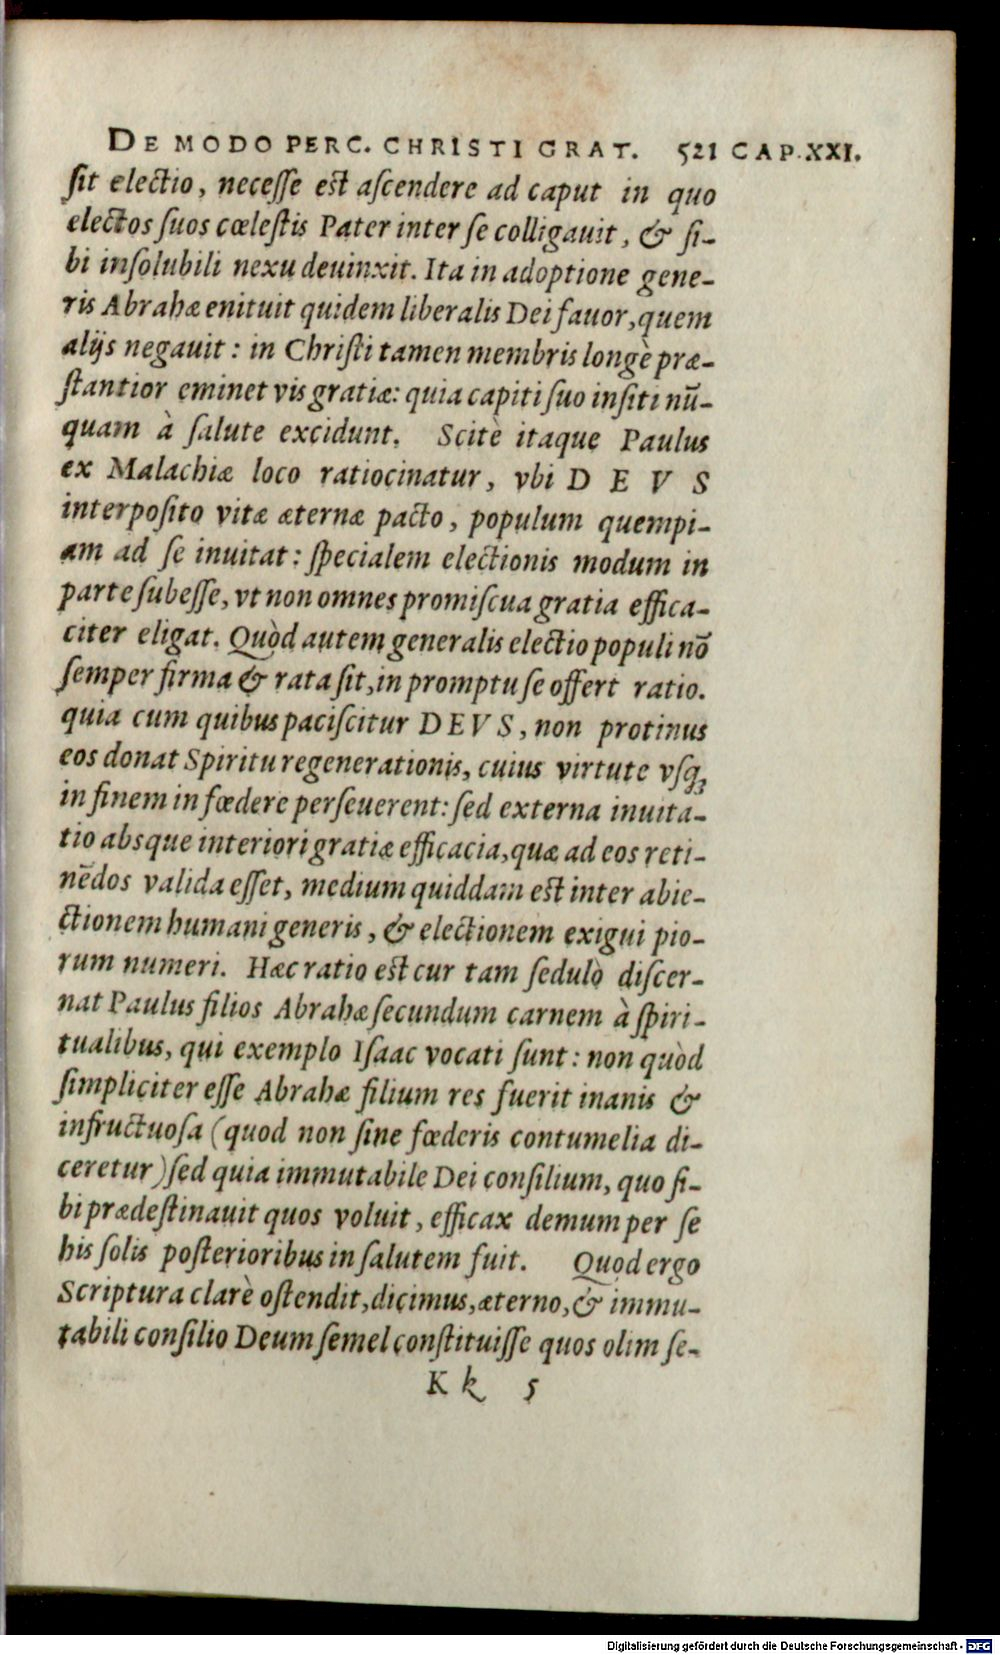 DE MODO PERC. CHRISTI GRAT. 521 CAP. XXI.
ſit electio, neceſſe est aſcendere ad caput in quo
electos ſuos cœleſtis Pater inter ſe colligauit, & ſi-
bi inſolubili nexu deuinxit. Ita in adoptione gene-
ris Abrahæ enituit quidem liberalis Dei fauor, quem
alijs negauit: in Chriſti tamen membris longè præ-
ſtantior eminet vis gratiæ: quia capiti ſuo inſiti nū-
quam à ſalute excidunt. Scitè itaque Paulus
ex Malachiæ loco ratiocinatur, vbi DEVS
interpoſito vitæ æternæ pacto, populum quempi-
am ad ſe inuitat: ſpecialem electionis modum in
parte ſubeſſe, vt non omnes promiſcua gratia effica-
citer eligat. Quòd autem generalis electio populi nō
ſemper firma & rata ſit, in promptu ſe offert ratio.
quia cum quibus paciſcitur DEVS, non protinus
eos donat Spiritu regenerationis, cuius virtute vſq;
in finem in fœdere perſeuerent: ſed externa inuita-
tio absque interiori gratiæ efficacia, quæ ad eos reti-
nēdos valida eſſet, medium quiddam est inter abie-
ctionem humani generis, & electionem exigui pio-
rum numeri. Hæc ratio est cur tam ſedulò diſcer-
nat Paulus filios Abrahæ ſecundum carnem à ſpiri-
tualibus, qui exemplo Iſaac vocati ſunt: non quòd
ſimpliciter eſſe Abrahæ filium res fuerit inanis &
infructuoſa (quod non ſine fœderis contumelia di-
ceretur) ſed quia immutabile Dei conſilium, quo ſi-
bi prædeſtinauit quos voluit, efficax demum per ſe
his ſolis poſterioribus in ſalutem fuit. Quod ergo
Scriptura clarè oſtendit, dicimus, æterno, & immu-
tabili conſilio Deum ſemel conſtituiſſe quos olim ſe-
Kk 5
Digitalisierung gefördert durch die Deutsche Forschungsgemeinschaft - DFG